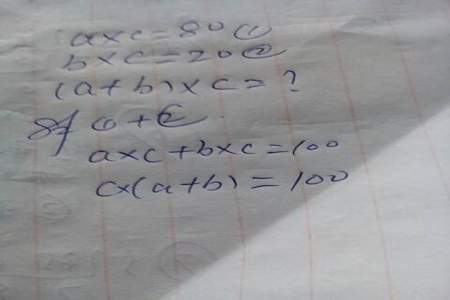 a×c=80 ①
b×c=20 ②
(a+b)×c=?
①+②
a×c+b×c=100
c×(a+b)=100